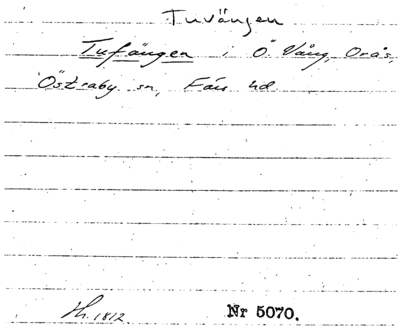 Tuvängen
Tufängen i Ö. Vång, Orås,
Östraby sn, Färs hd.
Hh. 1812 Nr 5070.